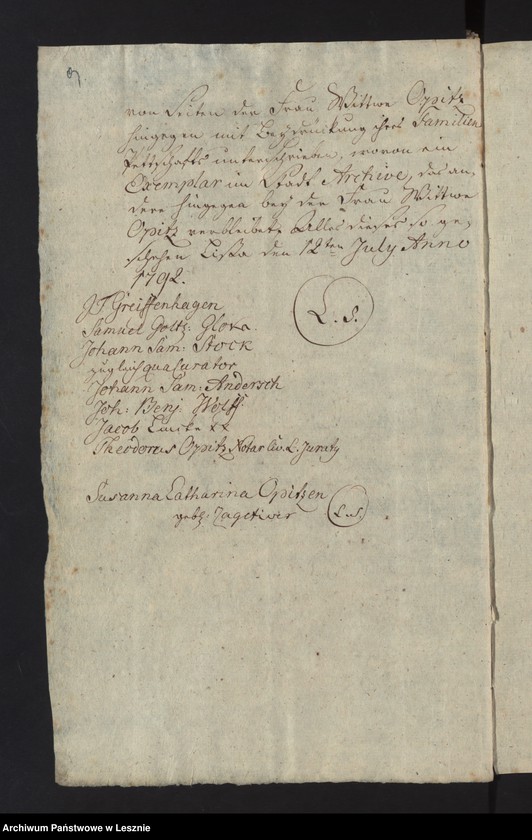 von Seiten der Frau Wittwe Opitz
hingegen mit Beydrückung ihres Familien
Pettschafts unterschrieben, wovon ein
Exemplar im Stadt Archive, das an,
dere hingegen bey der Frau Wittwe
Opitz verbleibet. Alles dieses so ge,
schehen Lissa den 12ten July Anno
1792.
J F Greiffenhagen
L. S.
Samuel Goltz
Johann Sam: Stock
zugleich qua Curator
Johann Sam: Andersch
Joh: Benj. Wolff
Jacob
Theodorus Opitz Notar Civ. L. Juratg
Susanna Catharina Opitzen
geb:
L. S.
Archiwum Państwowe w Lesznie